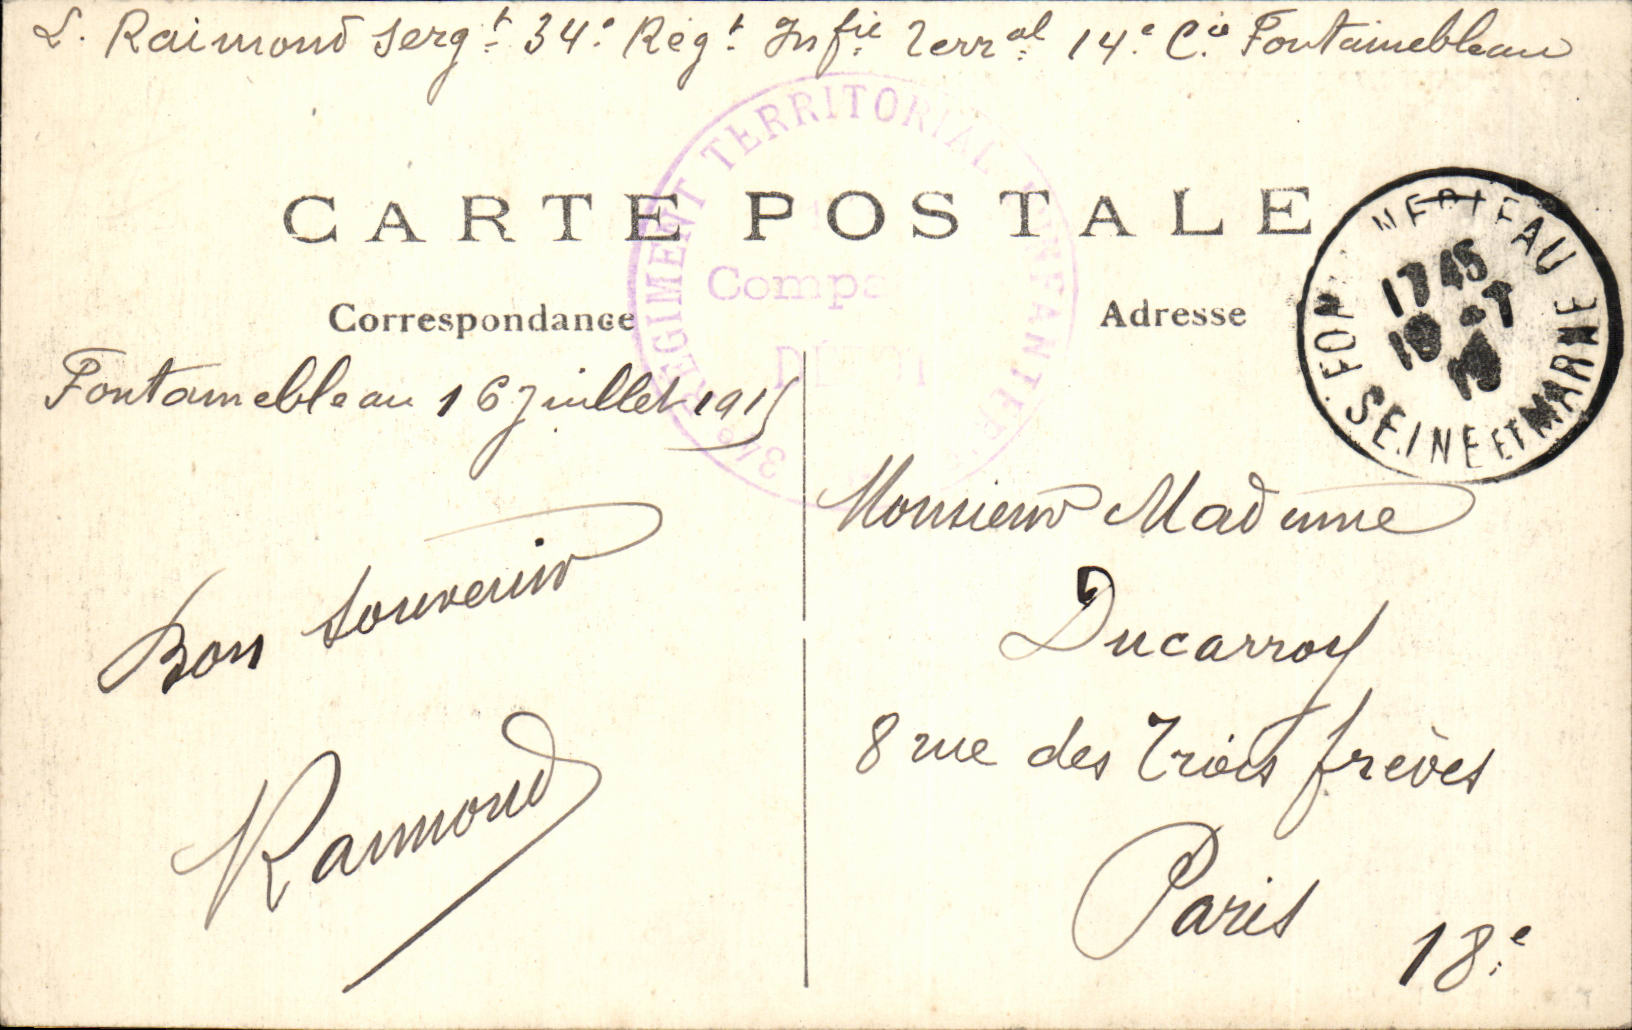 L. Raimond sergt 34e Régt Infie Terral 14e Cie Fontainebleau
34e REGIMENT TERRITORIAL INFANTERIE
CARTE POSTALE
DÉPOT
Correspondance
Adresse
FONTAINEBLEAU
17 45
SEINE ET MARNE
Fontainebleau 16 juillet 1915
Bon souvenir
Raimond
Monsieur Madame
Ducarroy
8 rue des Trois frères
Paris 18e